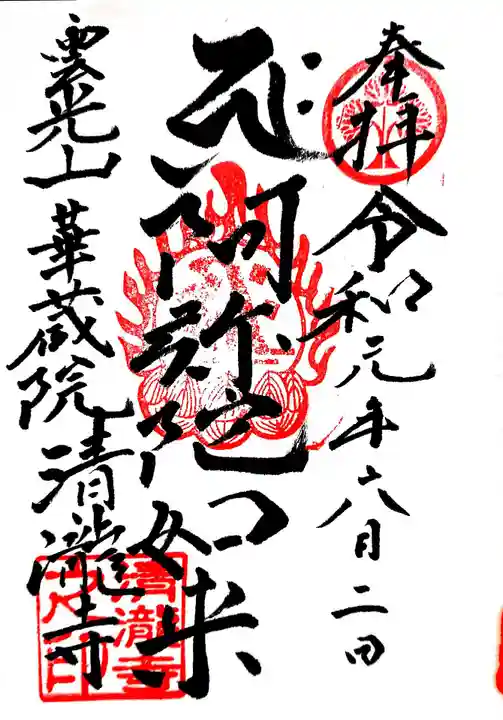 奉拝 令和元年六月二日
阿弥陀如来
雲光山 華蔵院 清瀧寺
清瀧寺